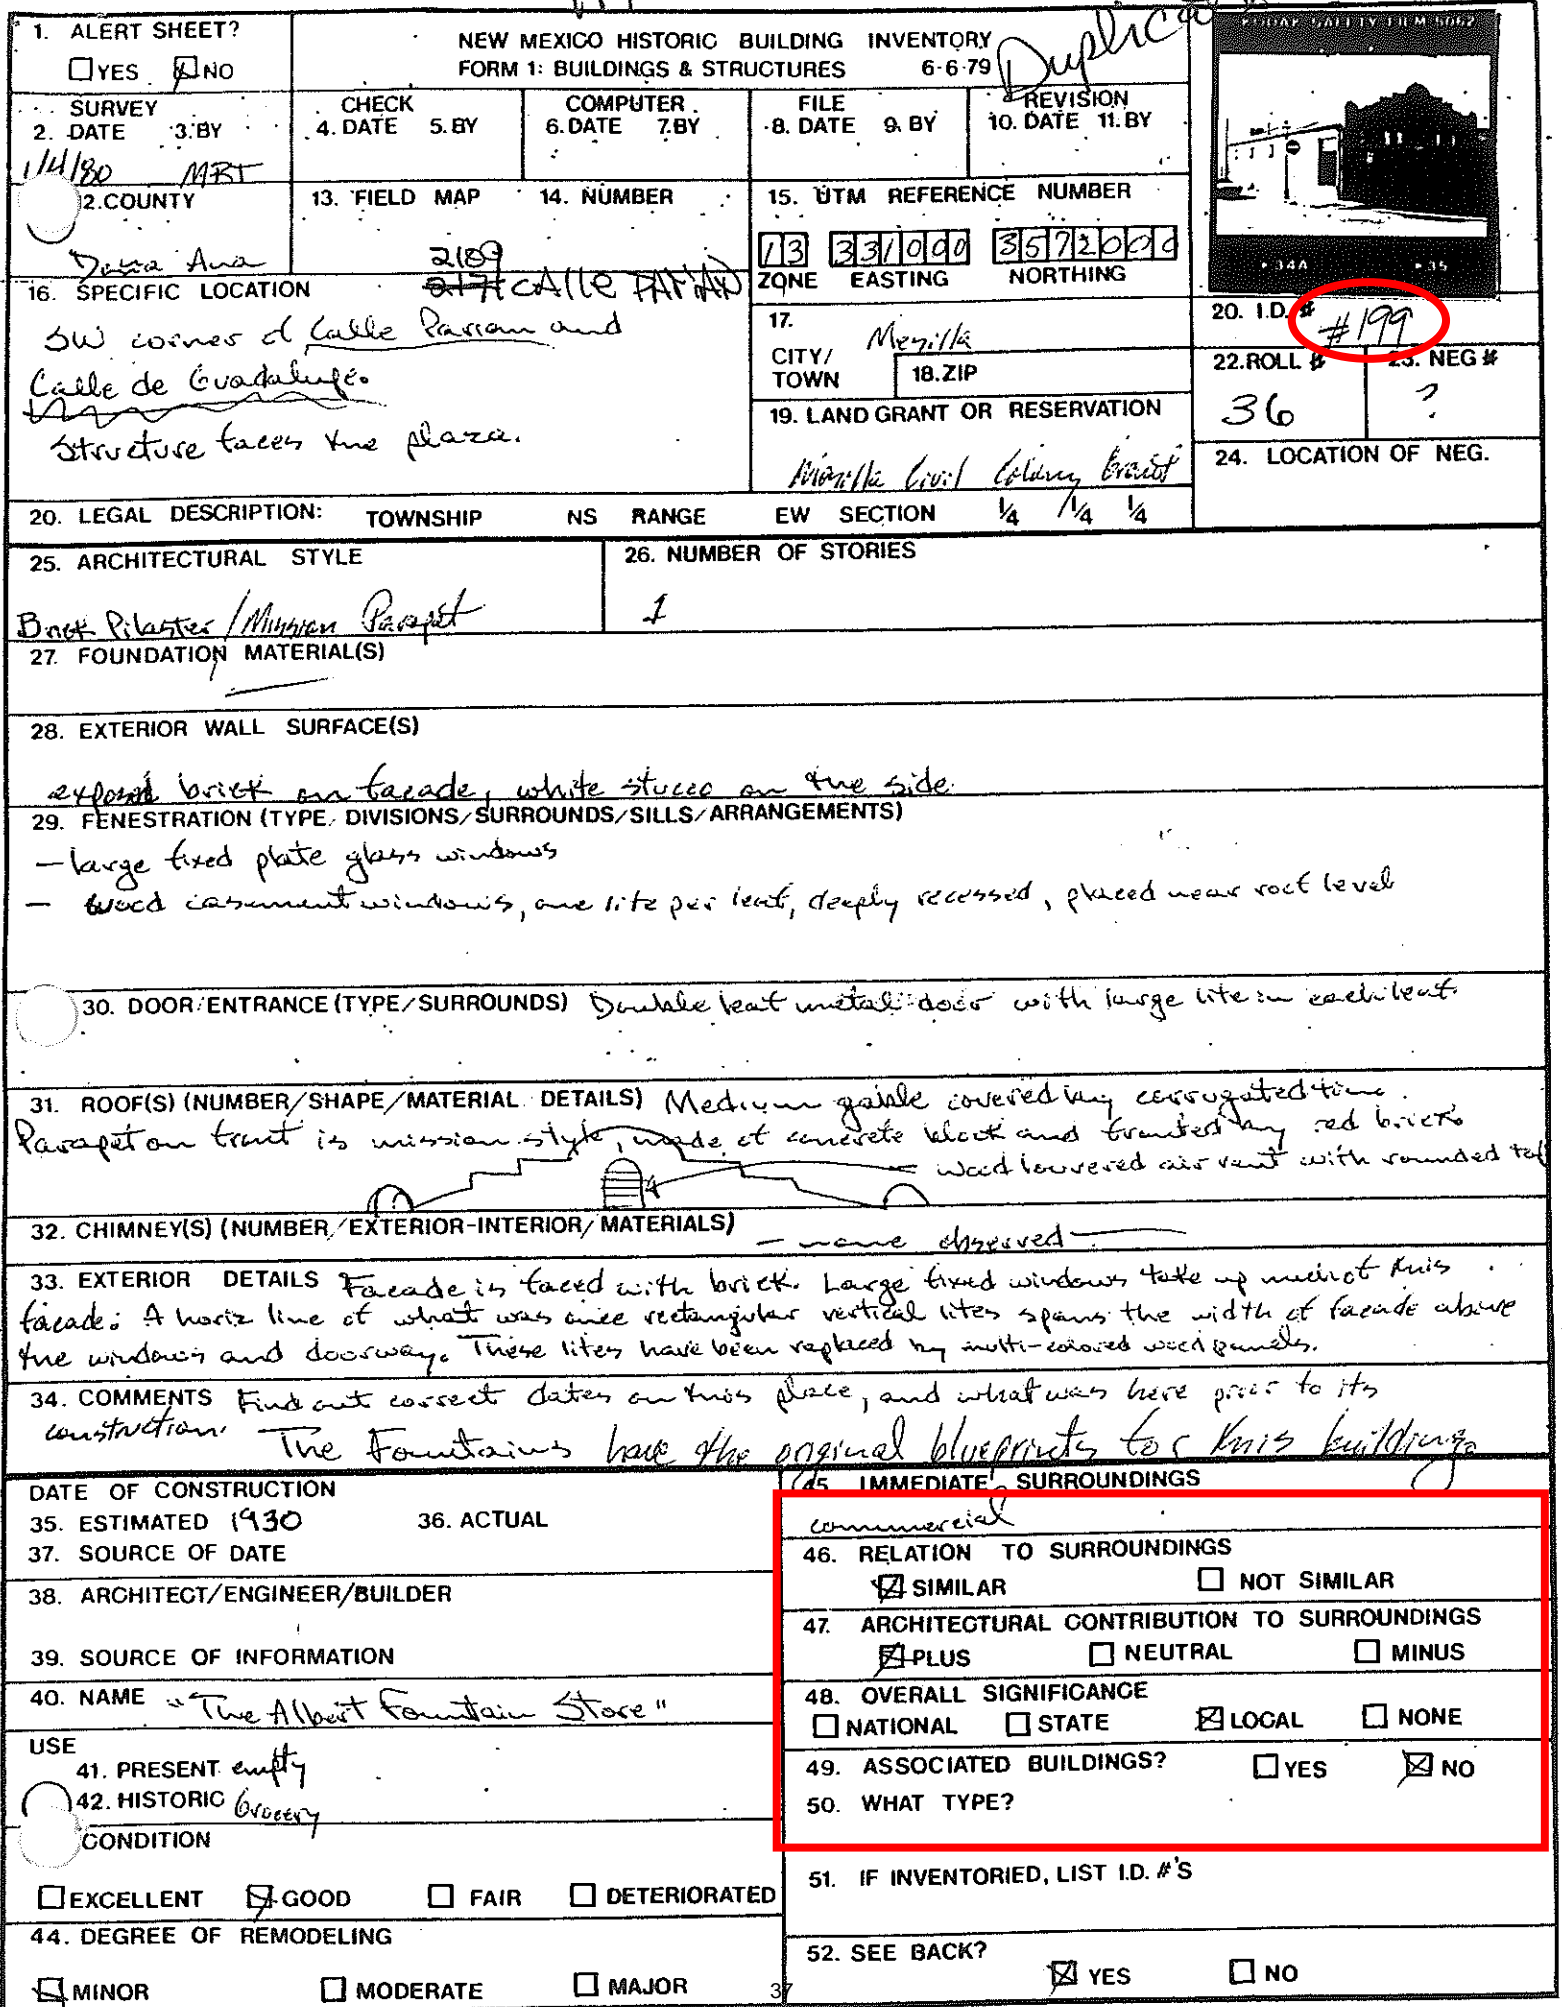 Duplicate
1. ALERT SHEET?
☐ YES ☒ NO
NEW MEXICO HISTORIC BUILDING INVENTORY
FORM 1: BUILDINGS & STRUCTURES 6-6-79
KODAK SAFETY FILM 5062
SURVEY
2. DATE 3. BY
1/4/80 MRT
CHECK
4. DATE 5. BY
COMPUTER
6. DATE 7. BY
FILE
8. DATE 9. BY
REVISION
10. DATE 11. BY
2. COUNTY
Doña Ana
13. FIELD MAP 14. NUMBER
15. UTM REFERENCE NUMBER
13 331000 3572000
ZONE EASTING NORTHING
34A 35
16. SPECIFIC LOCATION
2189
2171 CALLE PARIAN
SW corner of Calle Parian and
Calle de Guadalupe.
Structure faces the plaza.
17. CITY/TOWN Mesilla
18. ZIP
19. LAND GRANT OR RESERVATION
Mesilla Civil Colony Grant
20. I.D. # #199
22. ROLL # 36
23. NEG # ?
24. LOCATION OF NEG.
20. LEGAL DESCRIPTION: TOWNSHIP NS RANGE EW SECTION ¼ ¼ ¼
25. ARCHITECTURAL STYLE
Brick Pilaster/Mission Parapet
26. NUMBER OF STORIES
1
27. FOUNDATION MATERIAL(S)
28. EXTERIOR WALL SURFACE(S)
exposed brick on facade, white stucco on the side.
29. FENESTRATION (TYPE/DIVISIONS/SURROUNDS/SILLS/ARRANGEMENTS)
- large fixed plate glass windows
- wood casement windows, one lite per leaf, deeply recessed, placed near roof level
30. DOOR/ENTRANCE (TYPE/SURROUNDS) Double leaf metal door with large lite in each leaf.
31. ROOF(S) (NUMBER/SHAPE/MATERIAL DETAILS) Medium gable covered by corrugated tin.
Parapet on front is mission style, made of concrete block and fronted by red brick
wood louvered air vent with rounded top
32. CHIMNEY(S) (NUMBER/EXTERIOR-INTERIOR/MATERIALS) - none observed
33. EXTERIOR DETAILS Facade is faced with brick. Large fixed windows take up much of this
facade. A horiz line of what was once rectangular vertical lites spans the width of facade above
the windows and doorway. These lites have been replaced by multi-colored wood panels.
34. COMMENTS Find out correct dates on this place, and what was here prior to its
construction. The Fountains have the original blueprints for this building.
DATE OF CONSTRUCTION
35. ESTIMATED 1930 36. ACTUAL
37. SOURCE OF DATE
38. ARCHITECT/ENGINEER/BUILDER
39. SOURCE OF INFORMATION
40. NAME "The Albert Fountain Store"
USE
41. PRESENT empty
42. HISTORIC Grocery
CONDITION
☐ EXCELLENT ☒ GOOD ☐ FAIR ☐ DETERIORATED
44. DEGREE OF REMODELING
☒ MINOR ☐ MODERATE ☐ MAJOR
45. IMMEDIATE SURROUNDINGS
commercial
46. RELATION TO SURROUNDINGS
☒ SIMILAR ☐ NOT SIMILAR
47. ARCHITECTURAL CONTRIBUTION TO SURROUNDINGS
☒ PLUS ☐ NEUTRAL ☐ MINUS
48. OVERALL SIGNIFICANCE
☐ NATIONAL ☐ STATE ☒ LOCAL ☐ NONE
49. ASSOCIATED BUILDINGS? ☐ YES ☒ NO
50. WHAT TYPE?
51. IF INVENTORIED, LIST I.D. #'S
52. SEE BACK?
☒ YES ☐ NO
37